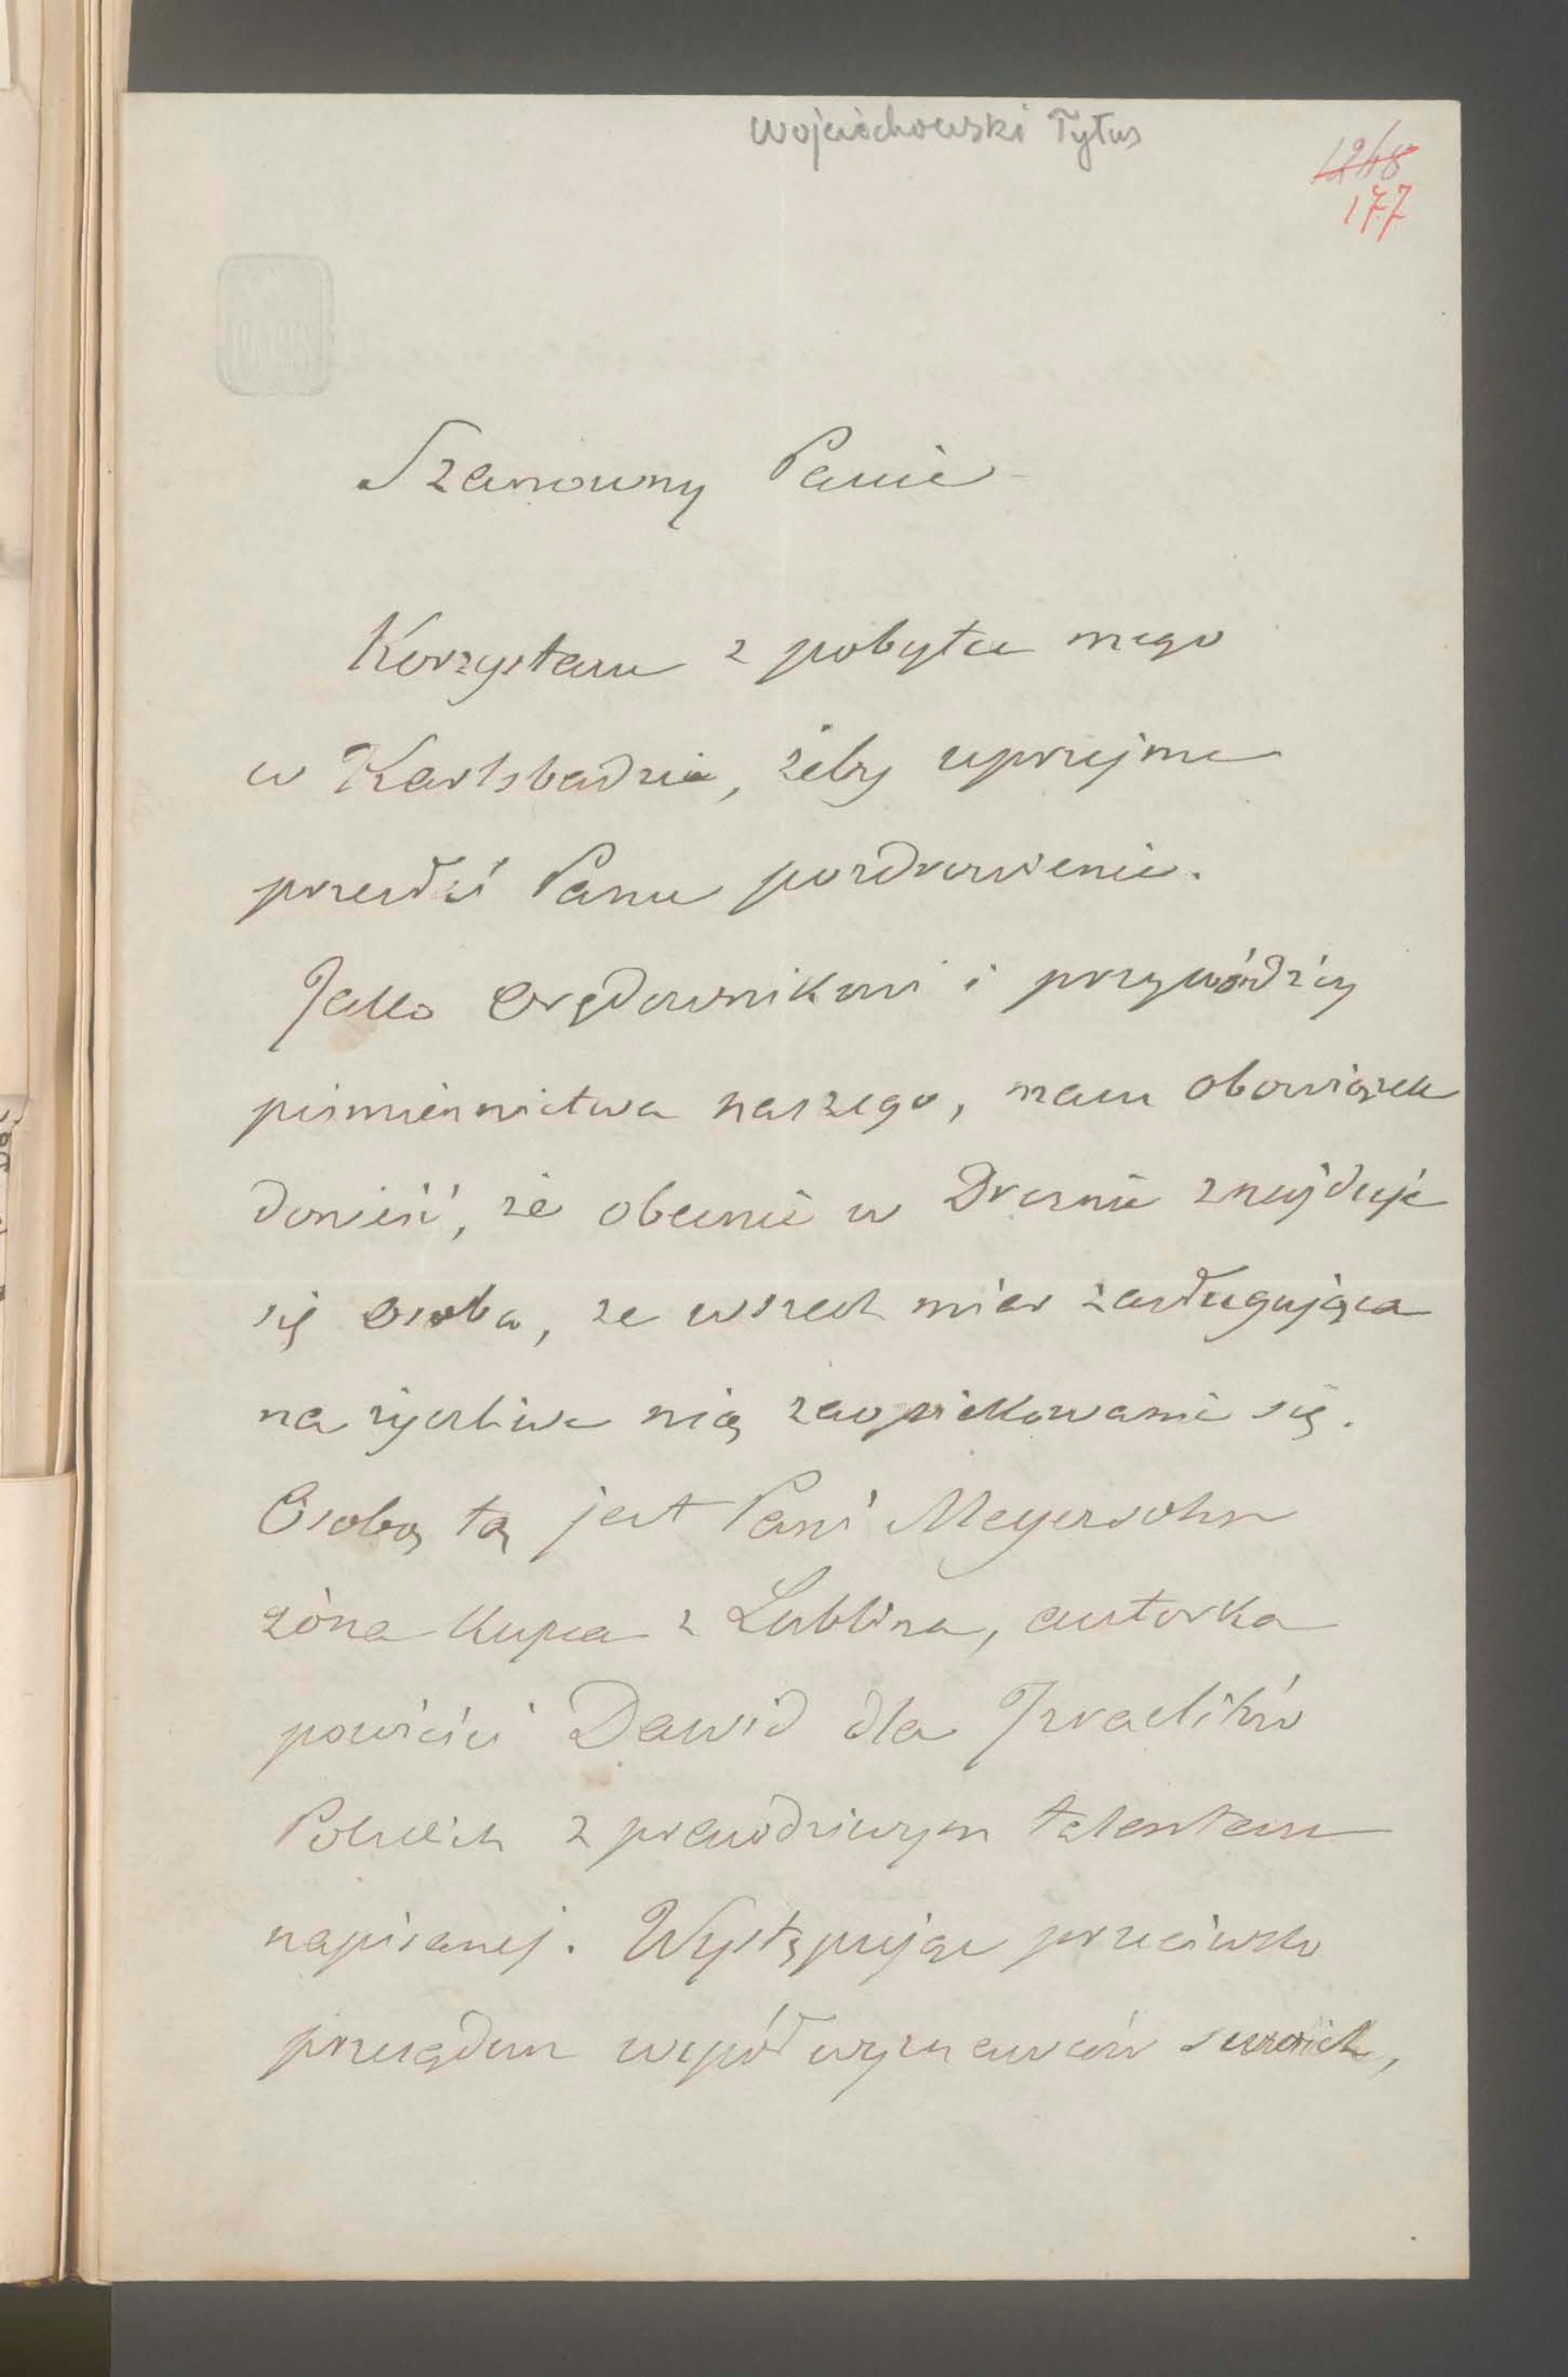 Wojciechowski Tytus
1248
177
Szanowny Panie
Korzystam z pobytu mego
w Karlsbadzie, żeby uprzejme
przesłać Panu pozdrowienie.
Jako orędownikowi i przywódzcy
piśmiennictwa naszego, mam obowiązek
donieść, że obecnie w Dreznie znajduje
się osoba, ze wszech miar zasługująca
na życzliwe nią zaopiekowanie się.
Osobą tą jest Pani Meyersohn
żona kupca z Lublina, autorka
powieści Dawid dla Izraelitów
Polskich z prawdziwym talentem
napisanej. Występując przeciwko
przesądom współwyznawców swoich,